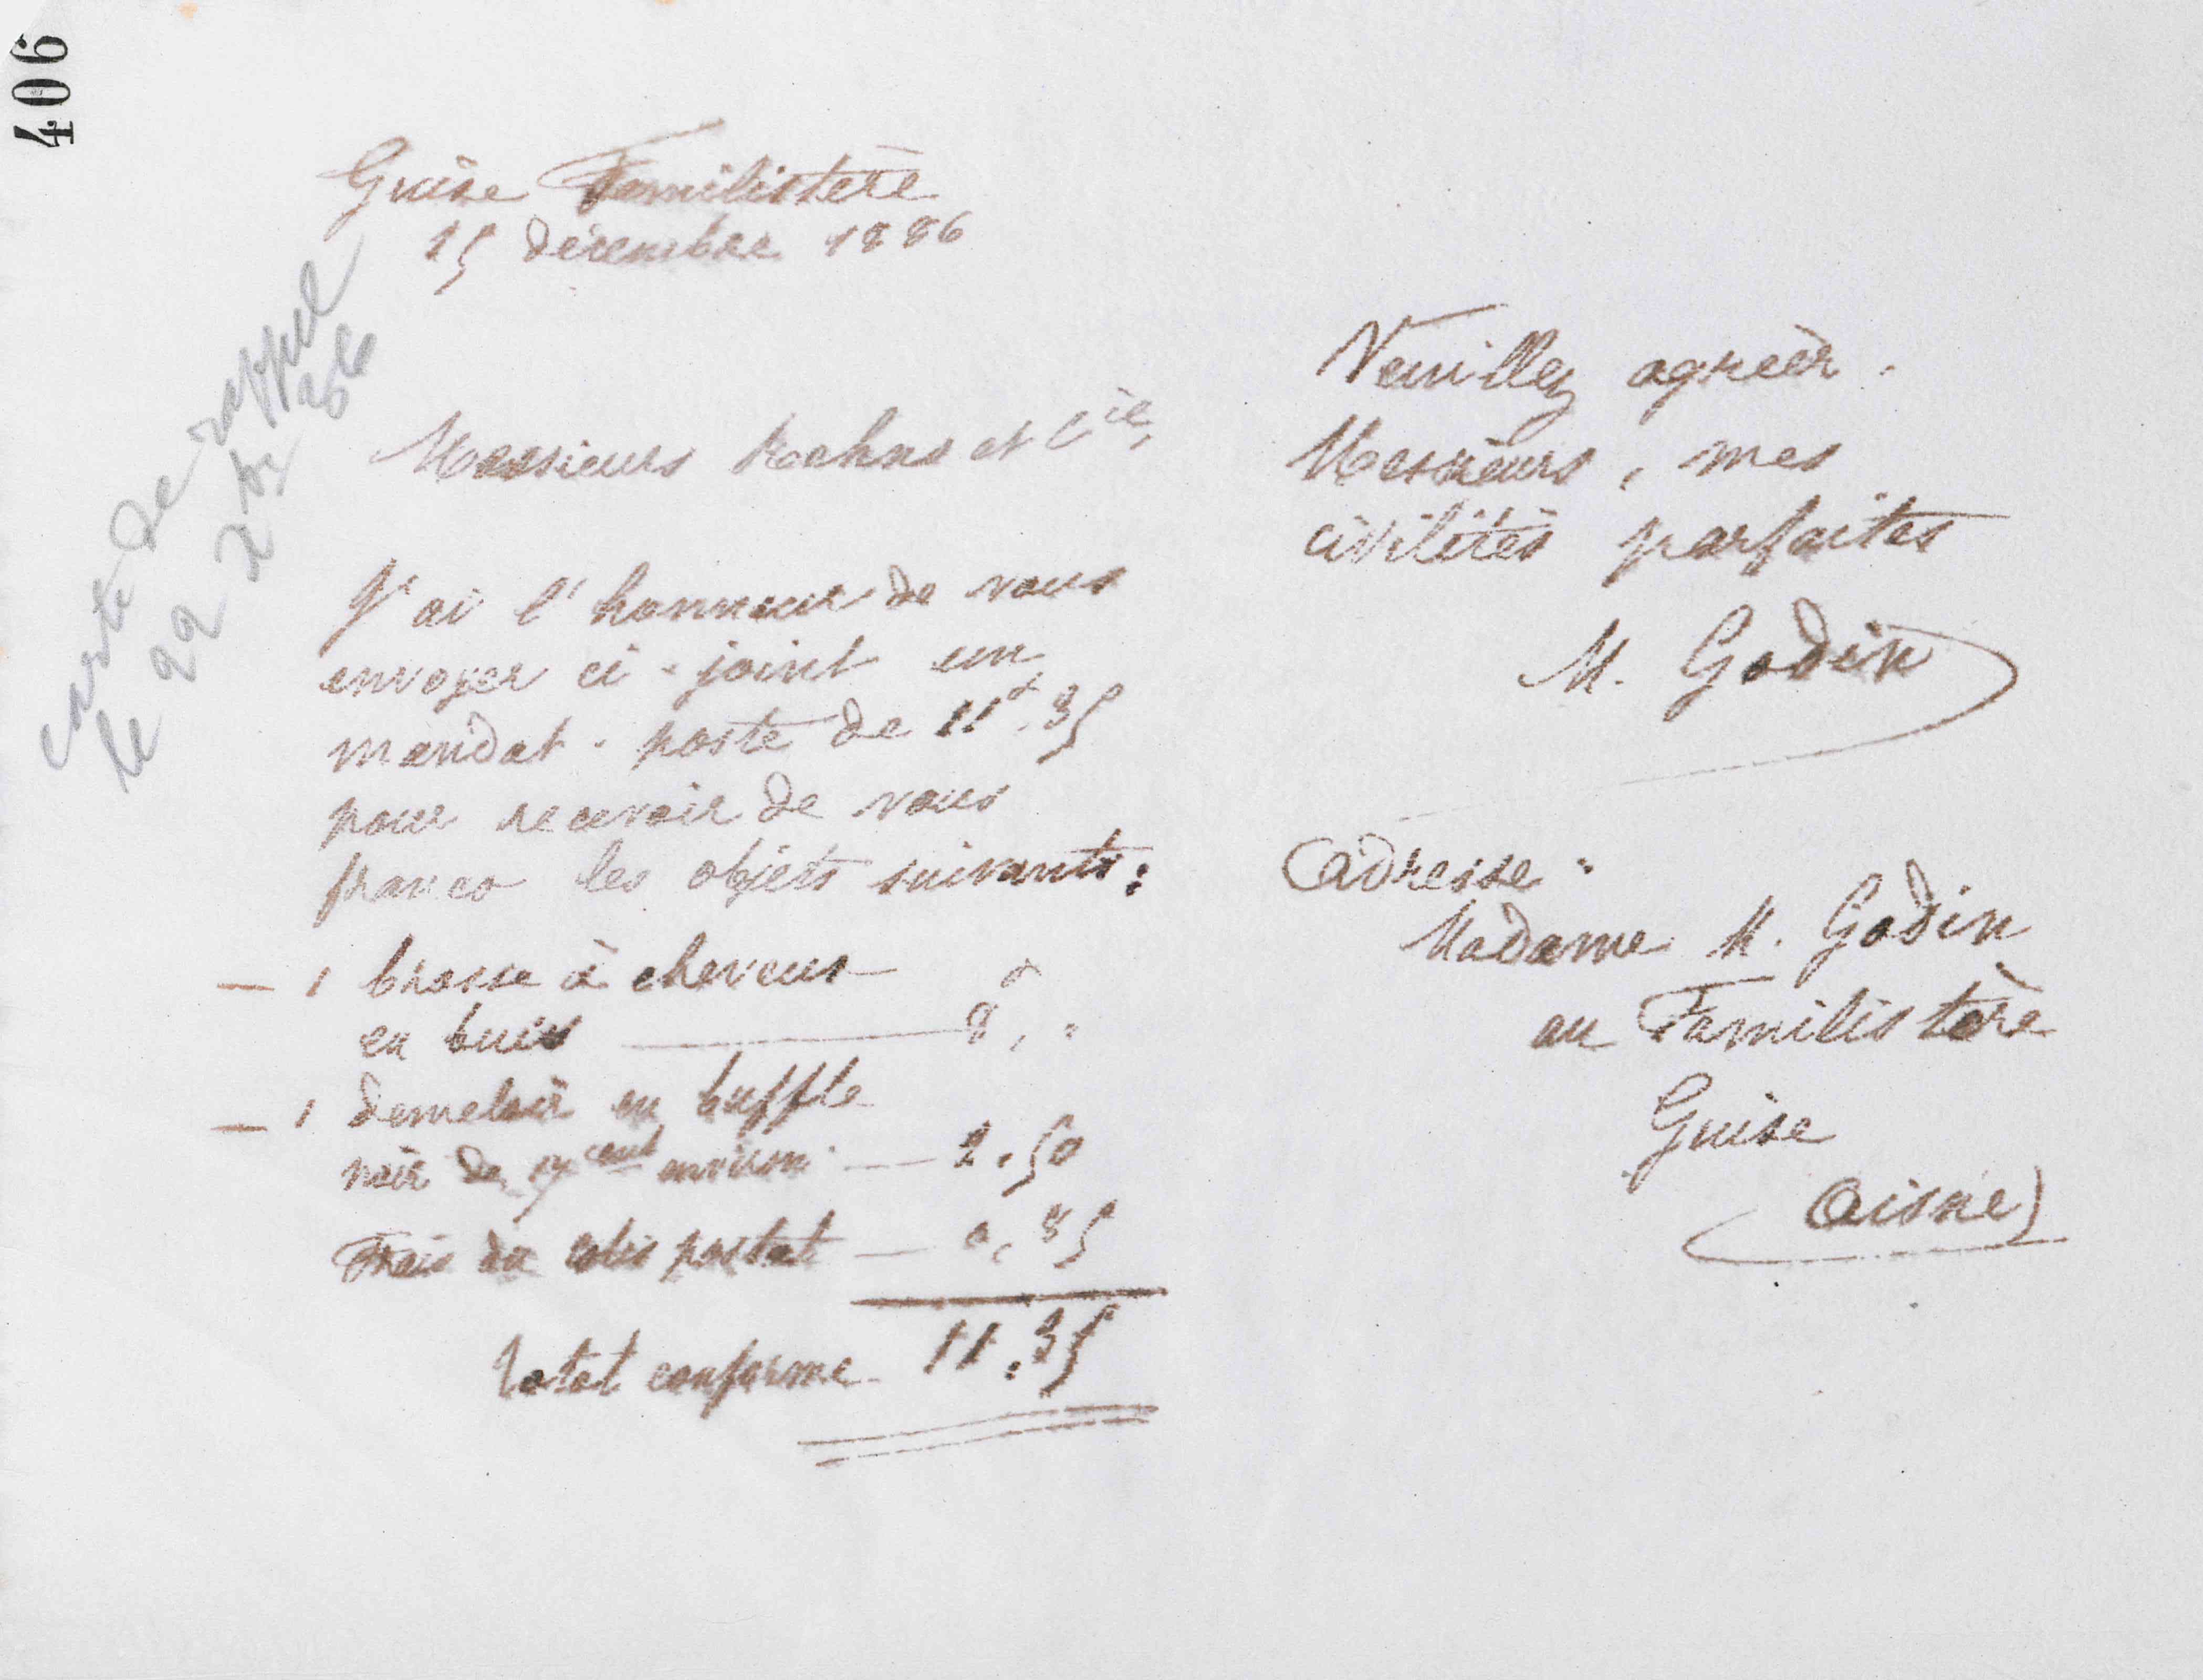 406
Guise Familistère
15 décembre 1886
carte de rappel
le 22 Xbre 86
Messieurs Kahns et Cie,
J'ai l'honneur de vous
envoyer ci-joint un
mandat-poste de 11f.35
pour recevoir de vous
franco les objets suivants:
— 1 brosse à cheveux
en buis — 8f, "
— 1 demeloir en buffle
noir de cent environ — 2.50
Frais du colis postal — 0,85
Total conforme 11.35
Veuillez agréer,
Messieurs, mes
civilités parfaites
M. Godin
Adresse:
Madame M. Godin
au Familistère
Guise
(Aisne)